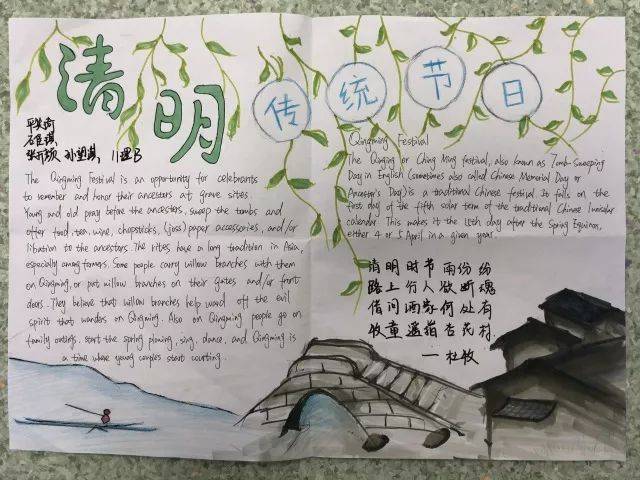 清明
传统节日
孙望淇, 11理B
The Qingming Festival is an opportunity for celebrants
to remember and honor their ancestors at grave sites.
Young and old pray before the ancestors, sweep the tombs and
offer food, tea, wine, chopsticks, (joss) paper accessories, and/or
libation to the ancestors. The rites have a long tradition in Asia,
especially among farmers. Some people carry willow branches with them
on Qingming, or put willow branches on their gates and/or front
doors. They believe that willow branches help ward off the evil
spirit that wanders on Qingming. Also on Qingming people go on
family outings, start the spring plowing, sing, dance, and Qingming is
a time where young couples start courting.
Qingming Festival
The Qingming or Ching Ming festival, also known as Tomb-Sweeping
Day in English (sometimes also called Chinese Memorial Day or
Ancestor's Day) is a traditional Chinese festival. It falls on the
first day of the fifth solar term of the traditional Chinese lunisolar
calendar. This makes it the 15th day after the Spring Equinox,
either 4 or 5 April in a given year.
清明时节雨纷纷
路上行人欲断魂
借问酒家何处有
牧童遥指杏花村
—杜牧